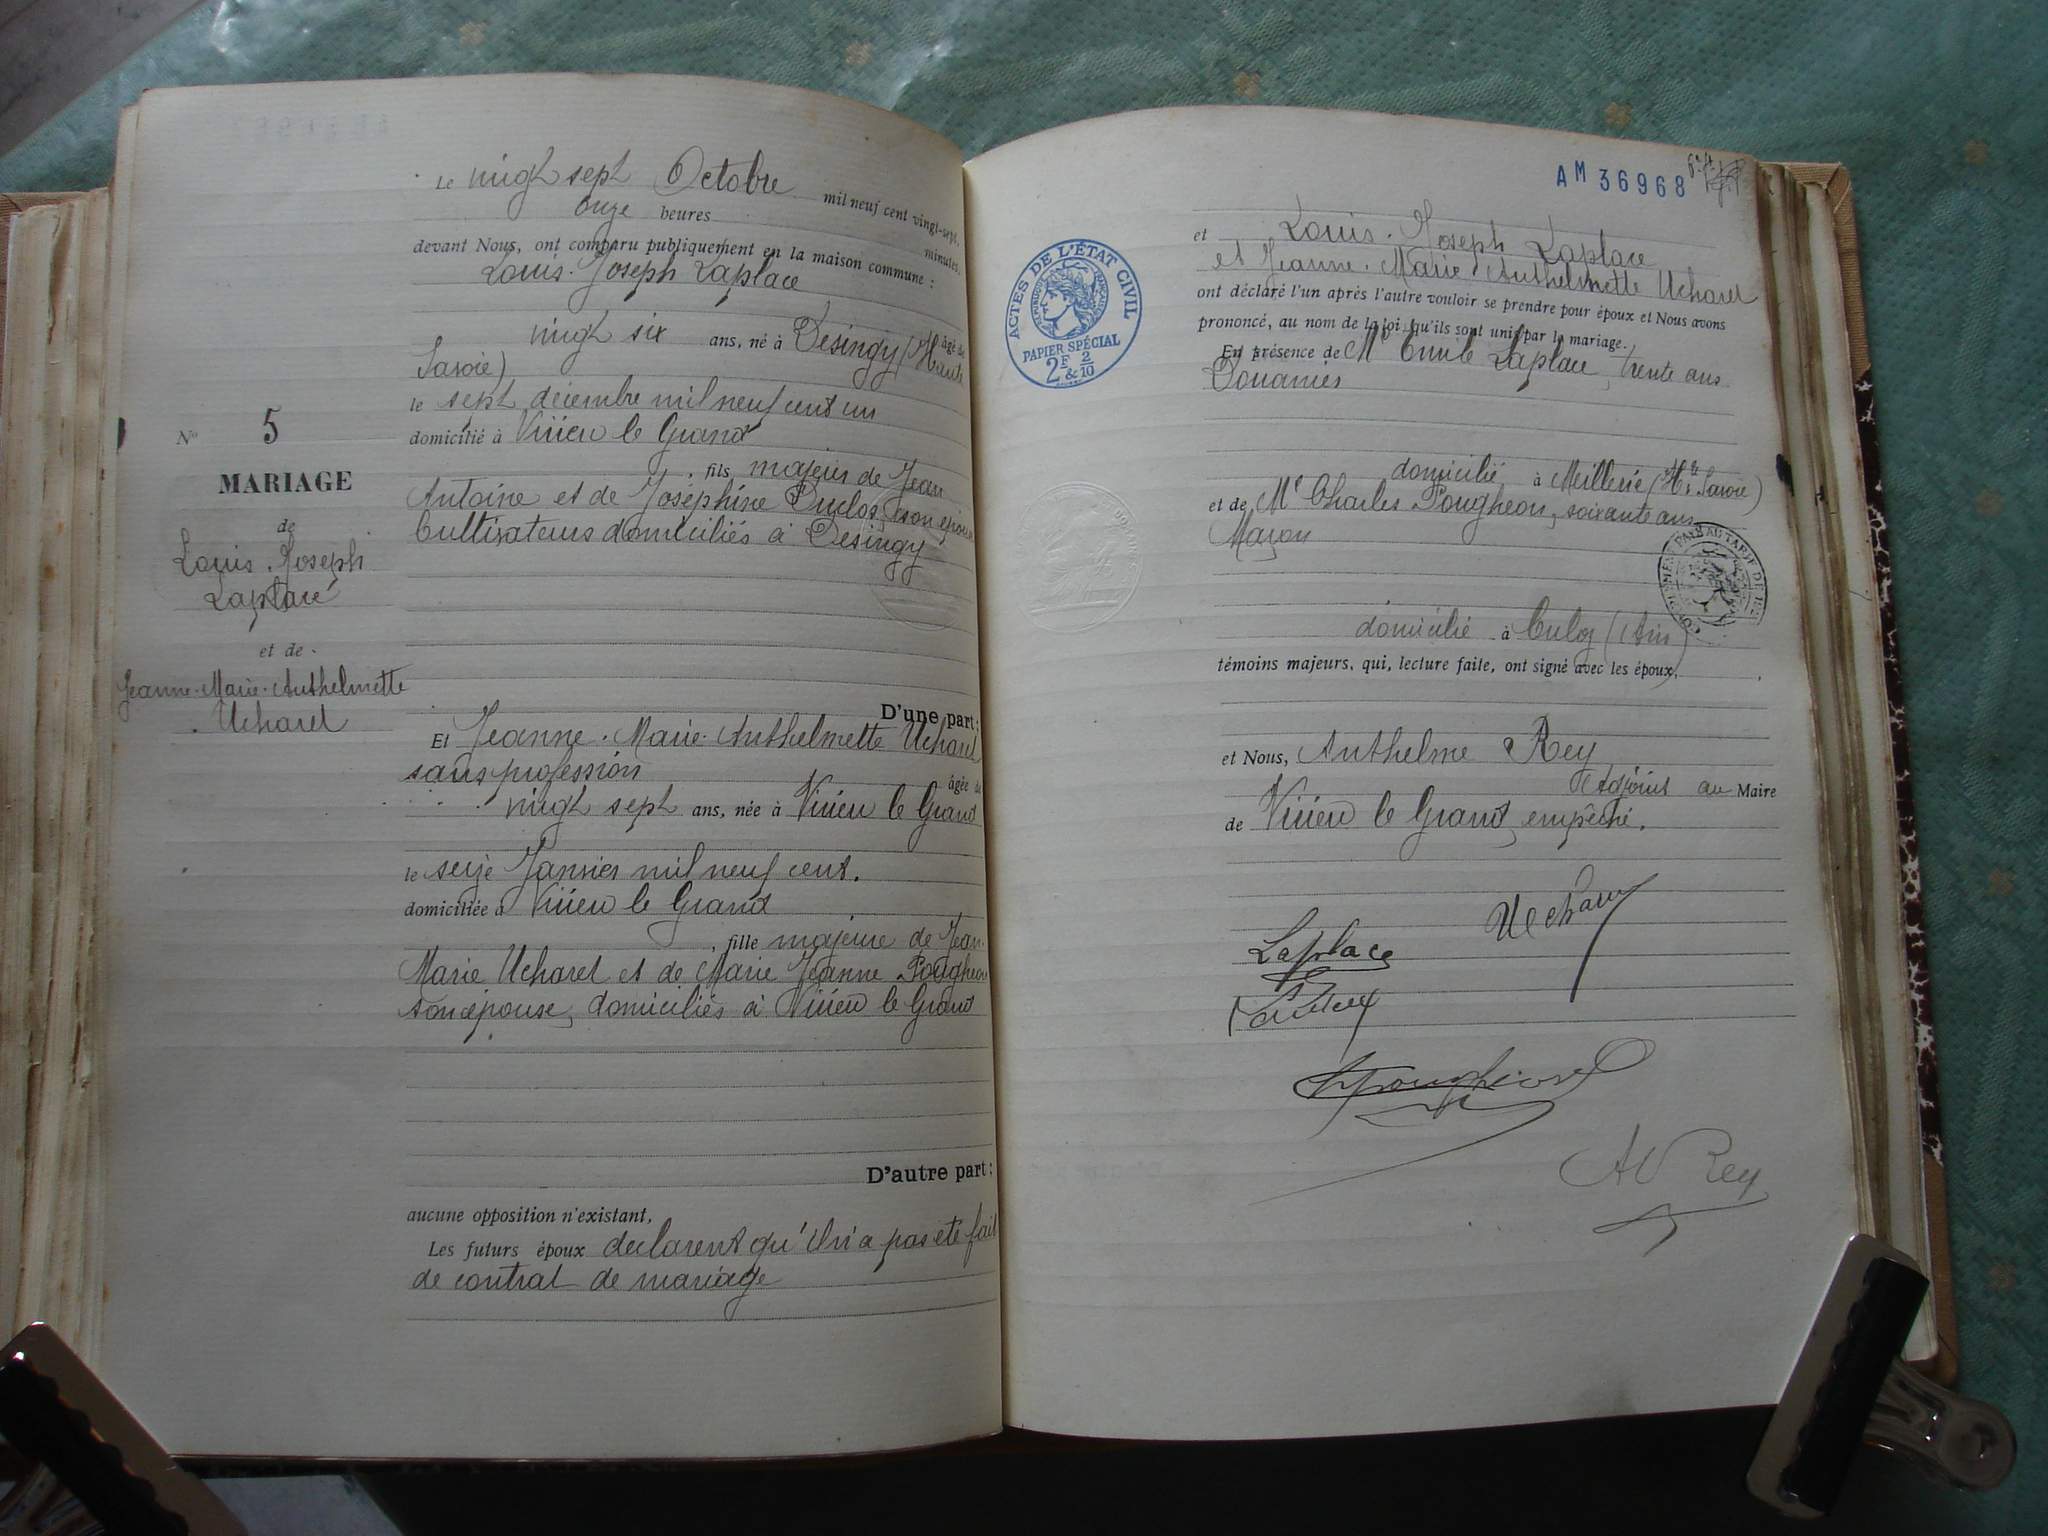 Le vingt sept Octobre mil neuf cent vingt-sept,
onze heures minutes,
devant Nous, ont comparu publiquement en la maison commune :
Louis-Joseph Laplace
âgé de
vingt six ans, né à Desingy (Haute
Savoie)
le sept décembre mil neuf cent un
domicilié à Virieu le Grand
, fils majeur de Jean
Antoine et de Joséphine Duclos, son épouse
Cultivateurs domiciliés à Desingy
No 5
MARIAGE
de
Louis-Joseph
Laplace
et de
Jeanne-Marie-Anthelmette
Ucharel
D'une part :
Et Jeanne-Marie-Anthelmette Ucharel
sans profession
âgée de
vingt sept ans, née à Virieu le Grand
le seize Janvier mil neuf cent.
domiciliée à Virieu le Grand
, fille majeure de Jean-
Marie Ucharel et de Marie Jeanne Pougheon
son épouse, domiciliés à Virieu le Grand
D'autre part :
aucune opposition n'existant,
Les futurs époux déclarent qu'il n'a pas été fait
de contrat de mariage
AM 36968
ACTES DE L'ÉTAT CIVIL
PAPIER SPÉCIAL
2F & 2/10
et Louis-Joseph Laplace
et Jeanne-Marie-Anthelmette Ucharel
ont déclaré l'un après l'autre vouloir se prendre pour époux et Nous avons
prononcé, au nom de la loi, qu'ils sont unis par la mariage.
En présence de Mr Emile Laplace, trente ans
Douanier
domicilié à Meillerie (Hte Savoie)
et de Mr Charles Pougheon, soixante ans
Maçon
domicilié à Culoz (Ain)
témoins majeurs, qui, lecture faite, ont signé avec les époux,
et Nous, Anthelme Rey
Adjoint au Maire
de Virieu le Grand, empêché.
Laplace
Rey